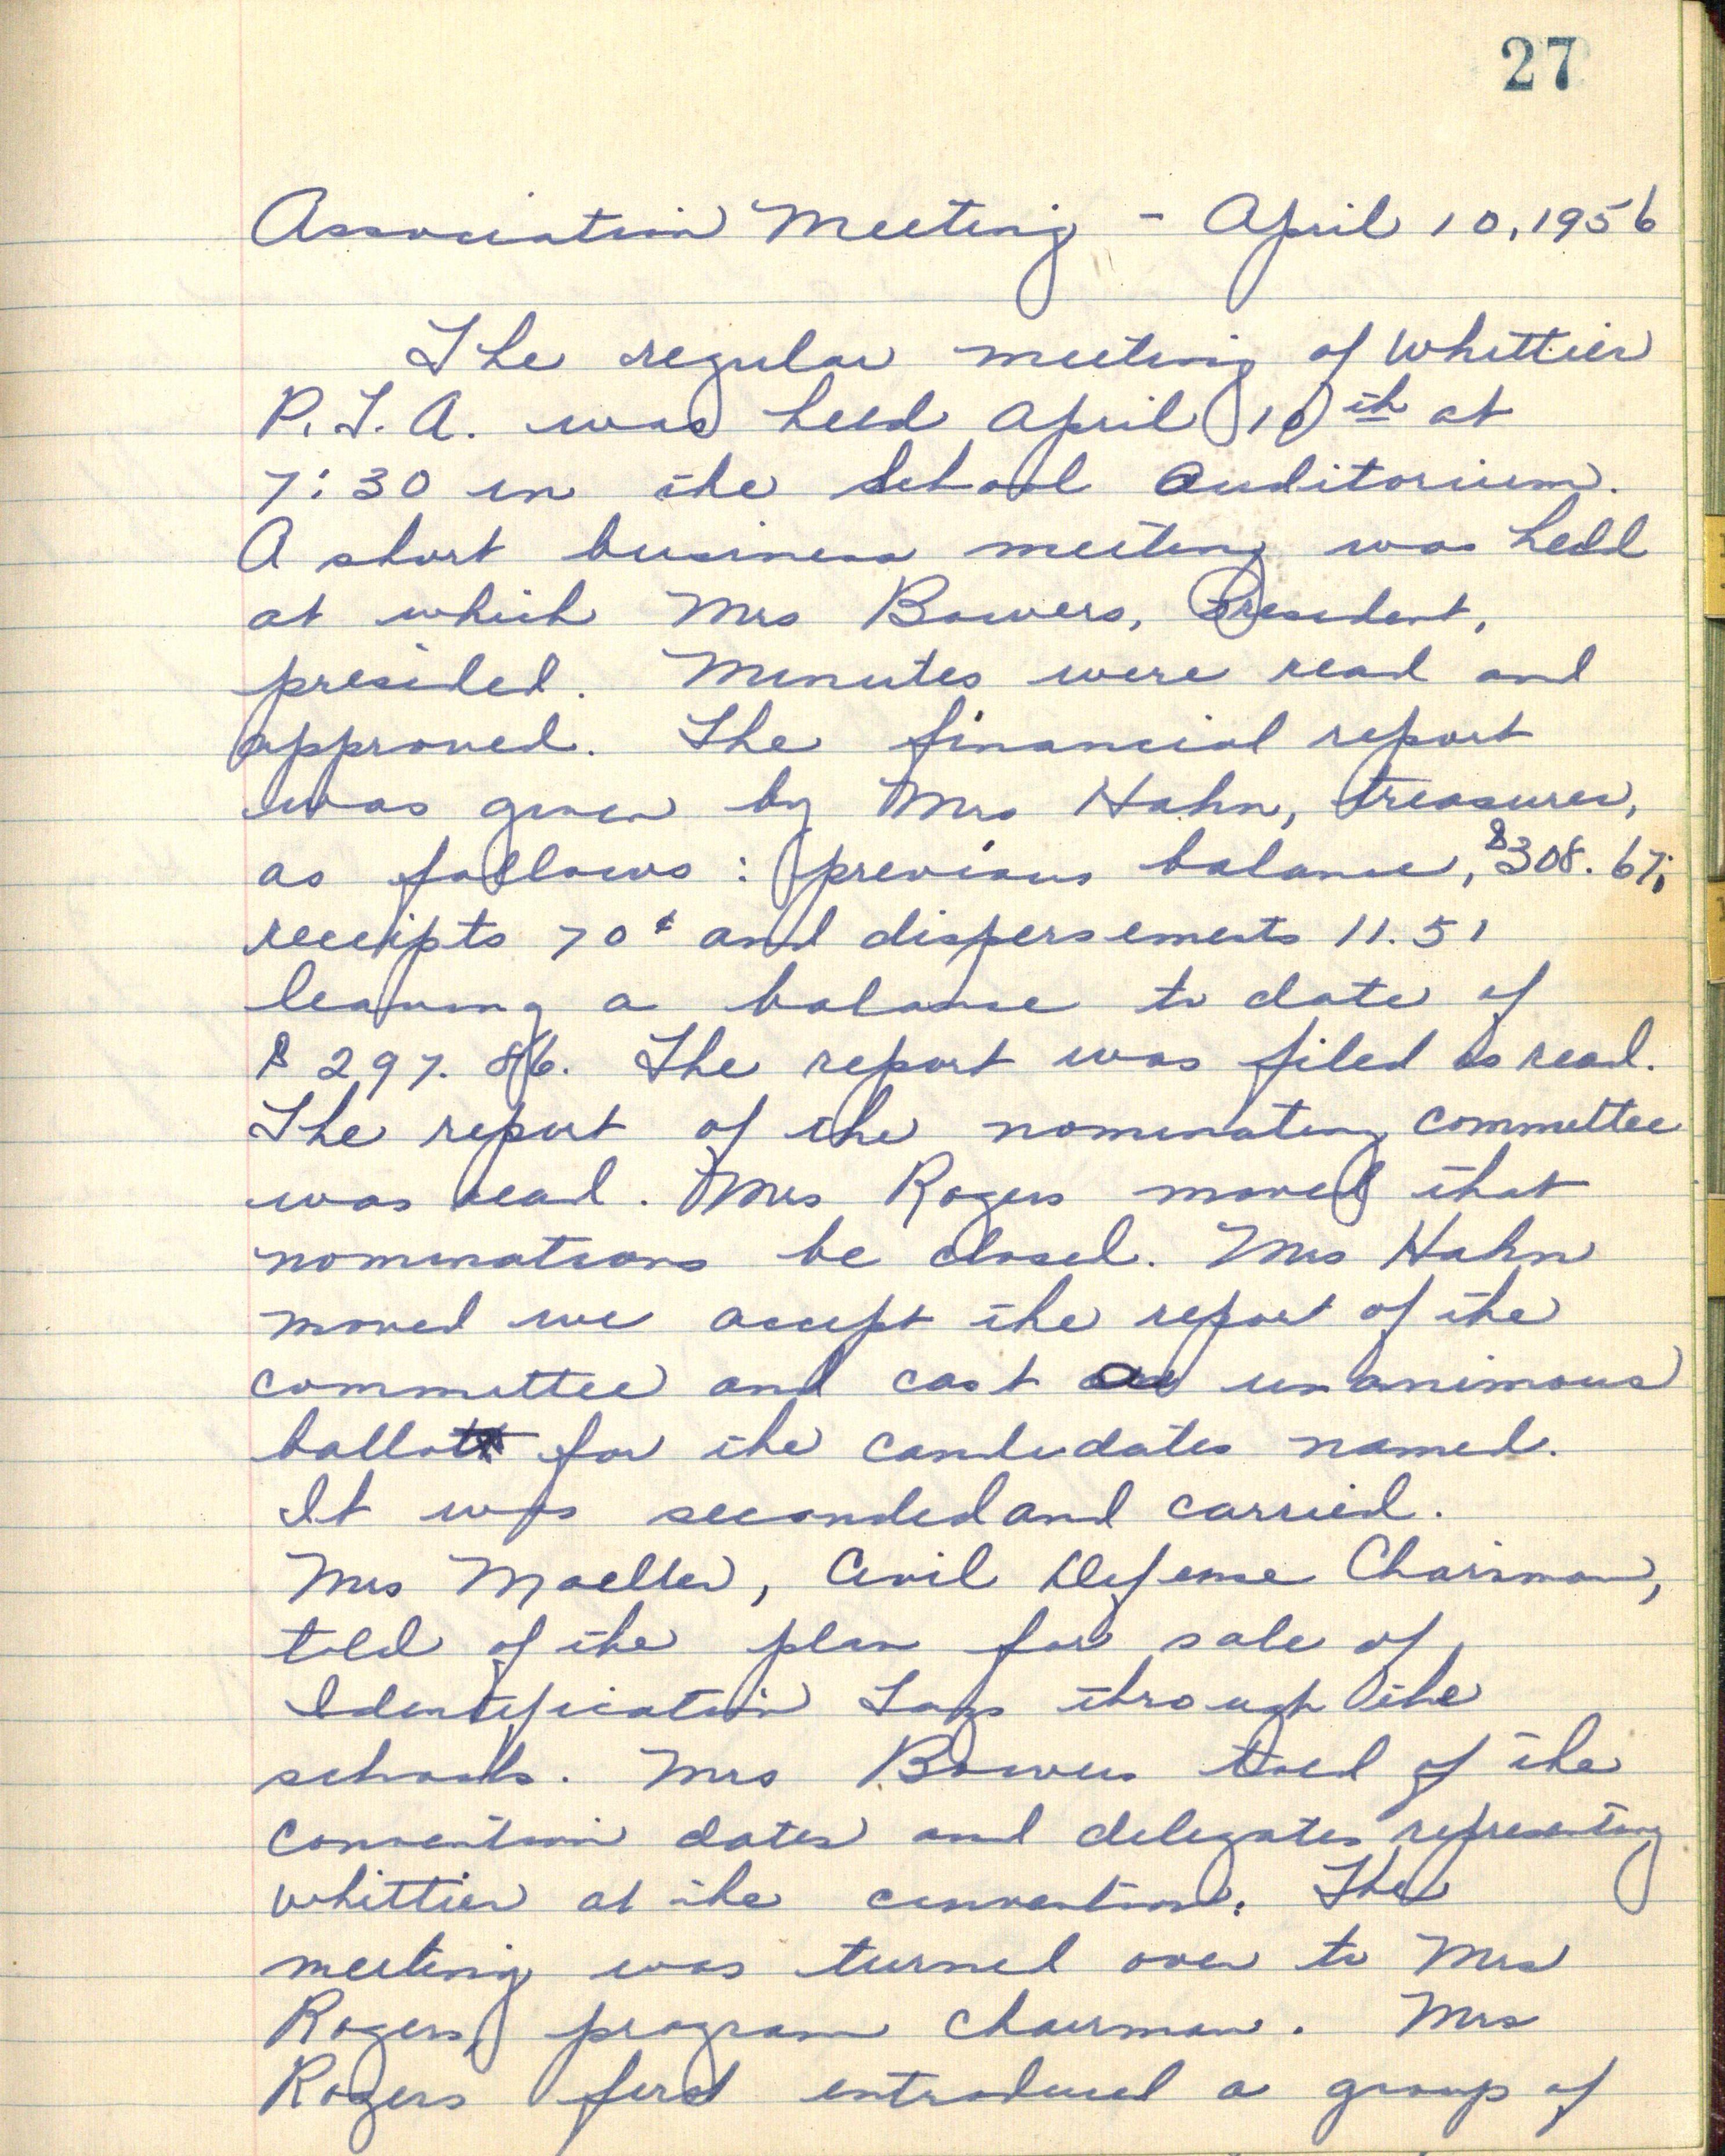 27
Association Meeting - April 10, 1956
The regular meeting of Whittier
P.T.A. was held April 10th at
7:30 in the school auditorium.
A short business meeting was held
at which Mrs Bowers, President,
presided. Minutes were read and
approved. The financial report
was given by Mrs Hahn, treasurer,
as follows: previous balance, $308.67;
receipts 70¢ and dispersements 11.51
leaving a balance to date of
$297.86. The report was filed as read.
The report of the nominating committee
was read. Mrs Rogers moved that
nominations be closed. Mrs Hahn
moved we accept the report of the
committee and cast an unanimous
ballot for the candidates named.
It was seconded and carried.
Mrs Moeller, Civil Defense Chairman,
told of the plan for sale of
Identification Tags through the
schools. Mrs Bowers told of the
convention dates and delegates representing
Whittier at the convention. The
meeting was turned over to Mrs
Rogers, program chairman. Mrs
Rogers first introduced a group of